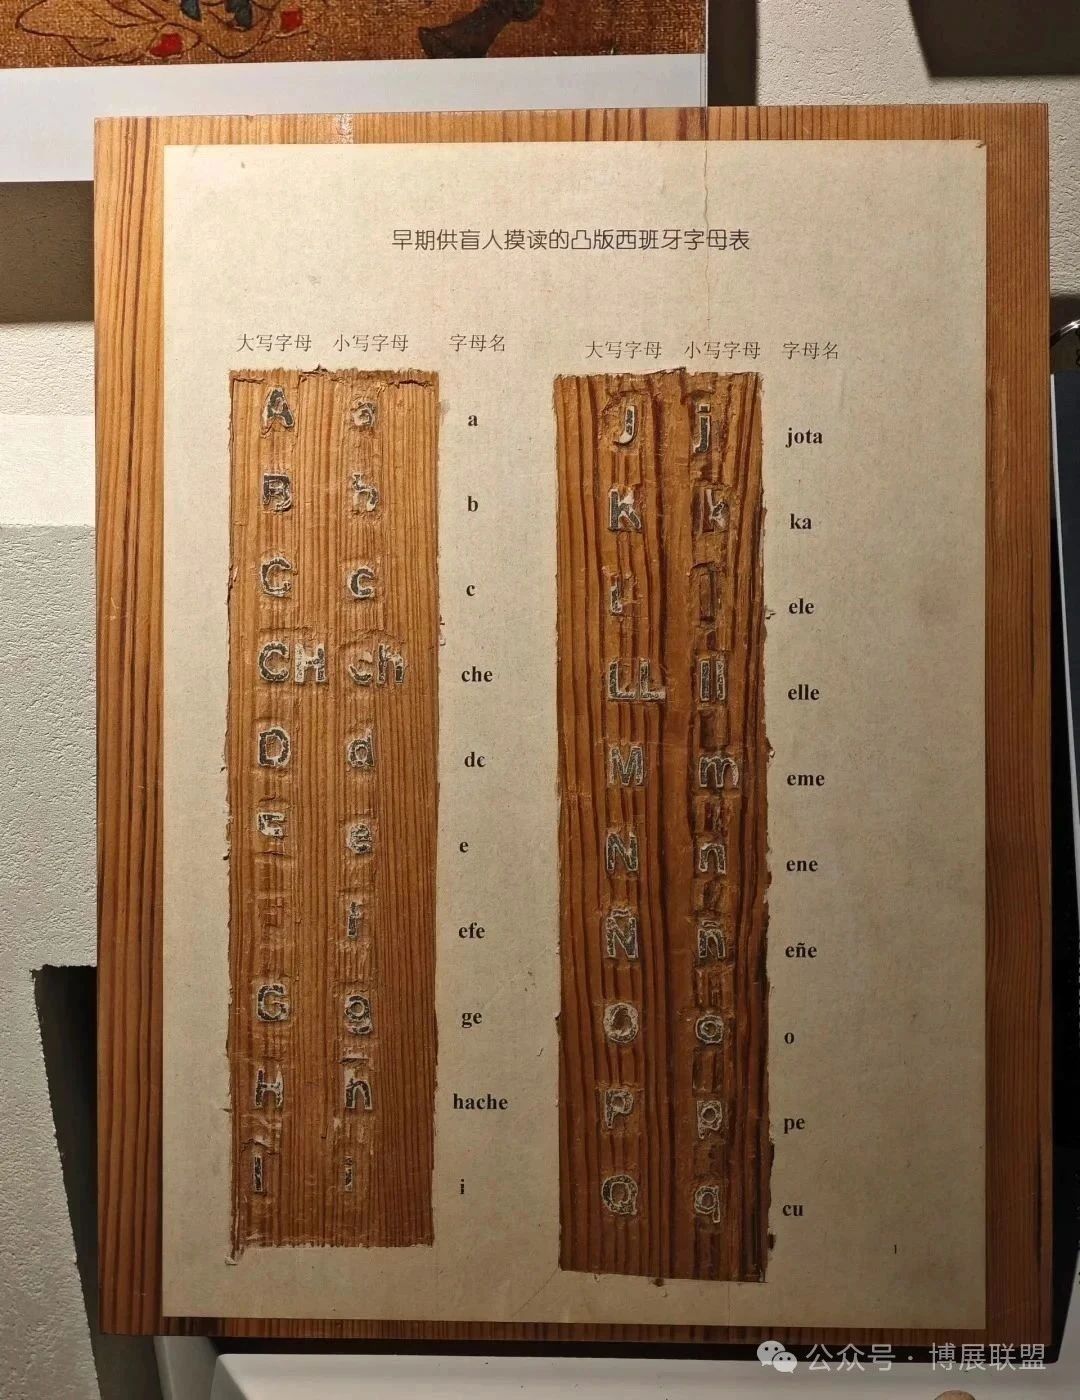 早期供盲人摸读的凸版西班牙字母表
大写字母 小写字母 字母名
A a a
B b b
C c c
CH ch che
D d de
E e e
f efe
G g ge
H h hache
I i i
大写字母 小写字母 字母名
J j jota
K k ka
L l ele
LL ll elle
M m eme
N n ene
Ñ ñ eñe
O o o
P p pe
Q q cu
1
公众号·博展联盟